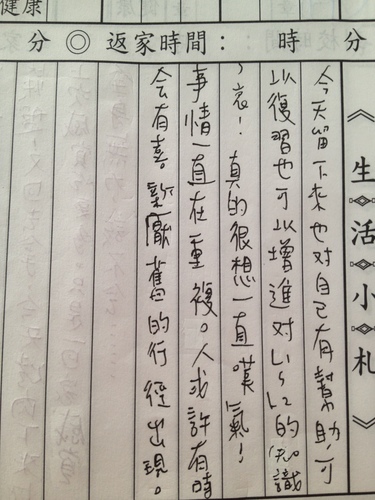 健康
分 ◎ 返家時間： 時 分
《生活小札》
今天留下來也对自己有幫助,可
以復習也可以增進对L1~L2的知識
,哀!真的很想一直嘆氣!
事情一直在重複。人或許有時
会有喜新厭舊的行徑出現。